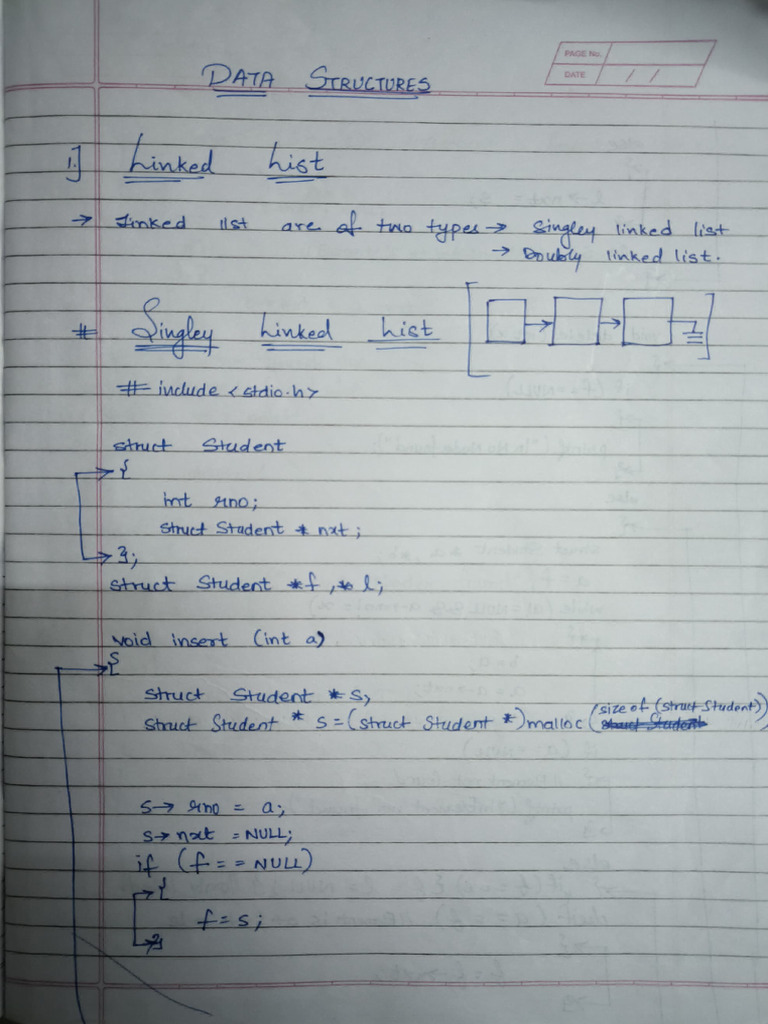 PAGE No.
DATE / /
DATA STRUCTURES
1.] Linked List
→ Linked list are of two types → Singley linked list
→ Doubly linked list.
# Singley Linked List
# include <stdio.h>
struct Student
{
int rno;
struct Student * nxt;
};
struct Student *f, * l;
void insert (int a)
{
struct Student * s,
struct Student * s = (struct Student *) malloc (size of (struct Student))
s → rno = a;
s → nxt = NULL;
if (f = = NULL)
{
f = s;
}